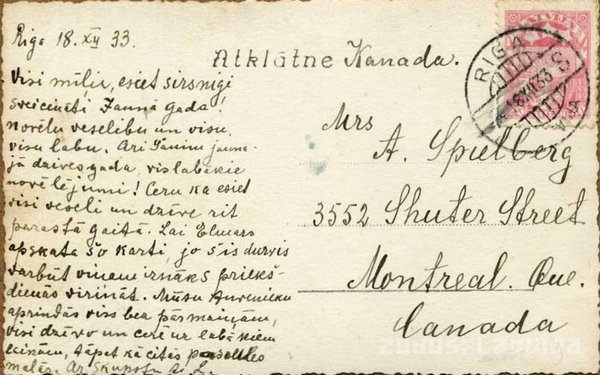 Riga 18. XII 33.
Visi mīļie, esiet sirsnīgi
sveicināti Jaunā gadā!
Novēlu veselību un visu,
visu labu. Arī Jānim jauna-
jā dzīves gadā, vislabākie
novēlējumi! Ceru ka esiet
visi veseli un dzīve rit
parastā gaitā. Lai Elmars
apskata šo karti, jo šīs durvis
varbūt viņam iznāks priekš-
dienās virināt. Mūsu
aprindās viss bez pārmaiņām,
visi dzīvo un cerē uz labākiem
laikiem, tāpat kā citās pasaules
malās. Ar skūpstu
Atklātne Kanada.
Mrs
A. Spielberg
3552 Shuter Street
Montreal. Que.
Canada
RIGA
18 XII 33
LATVIJA
ZUDUSI LATVIJA